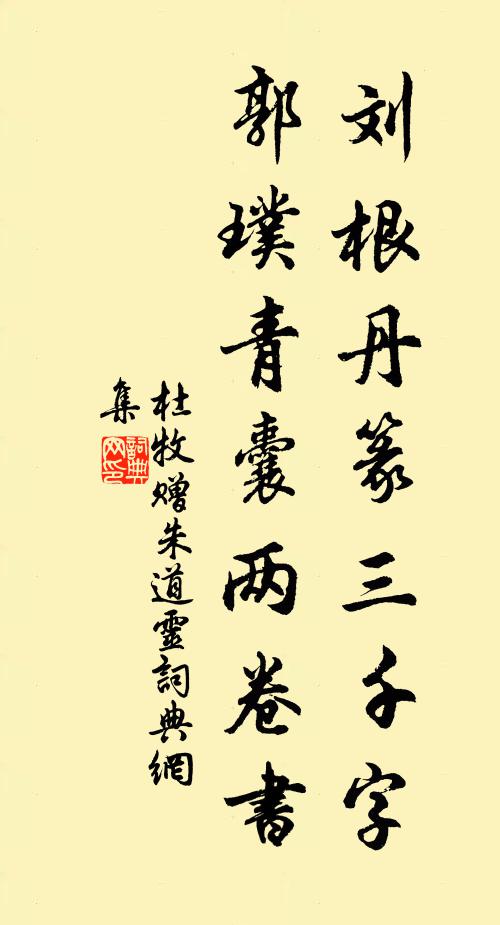 刘根丹篆三千字
郭璞青囊两卷书
杜牧赠朱道靈詞典網
集
詞典
网印